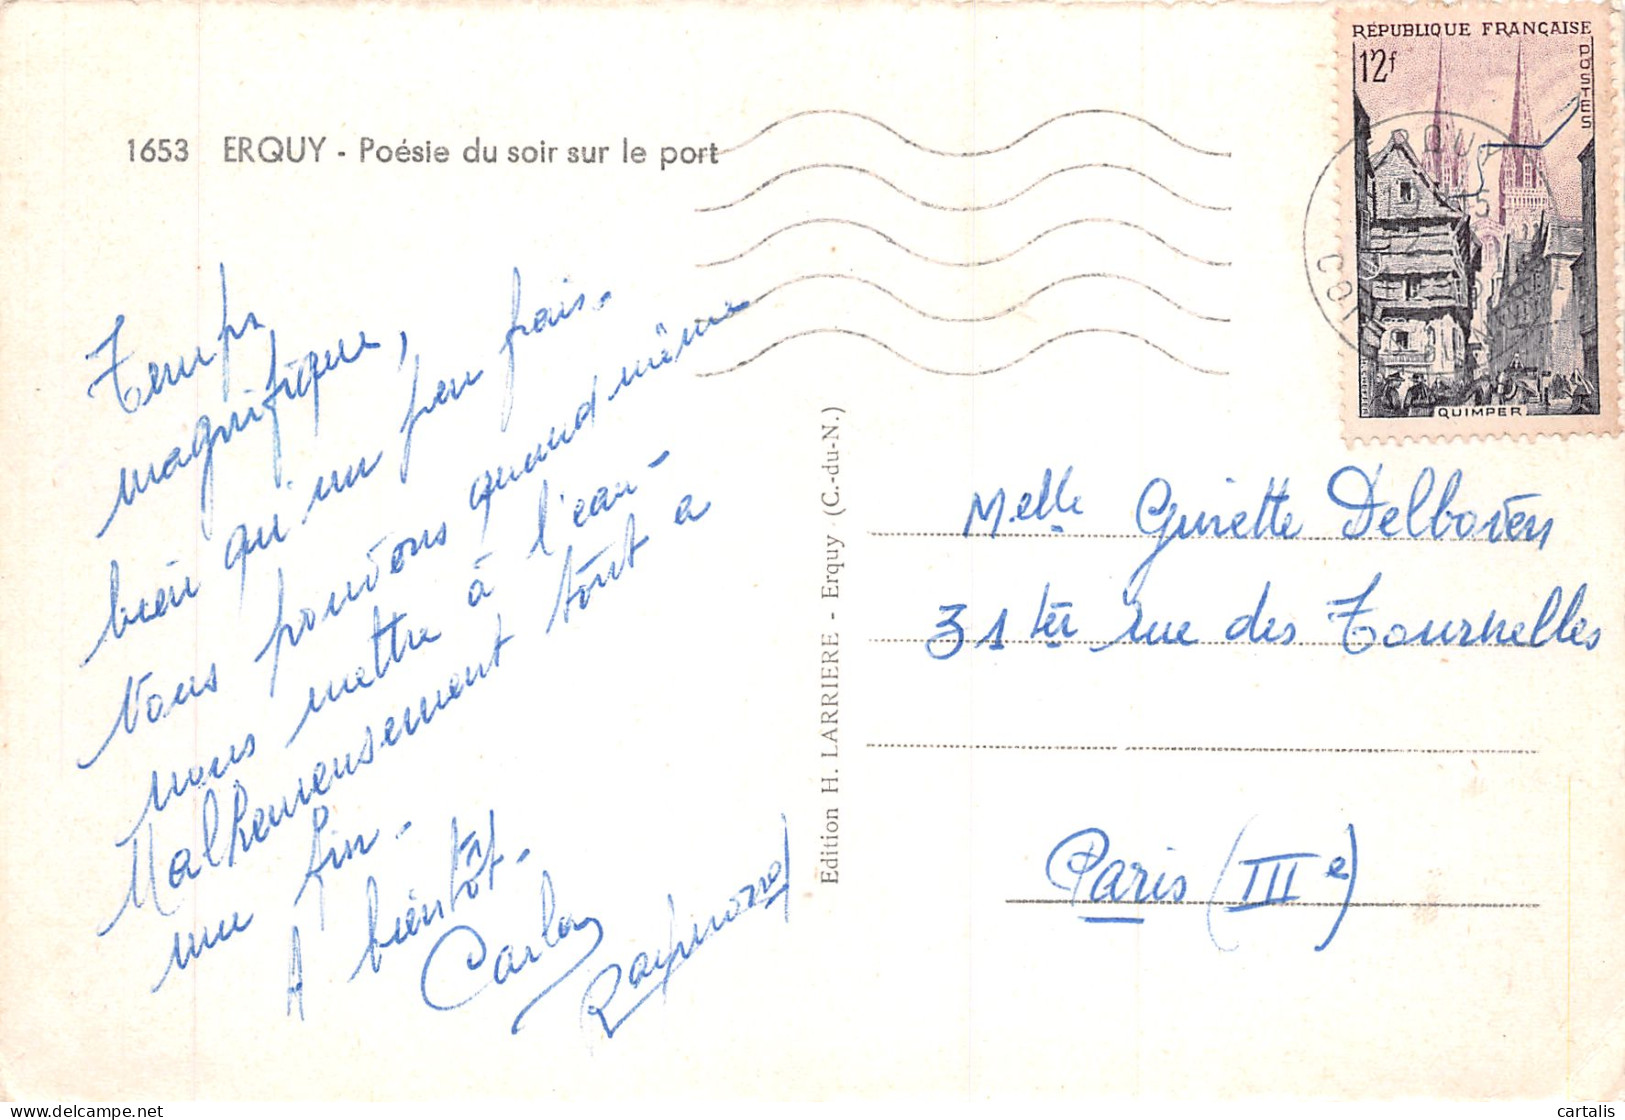 1653 ERQUY - Poésie du soir sur le port
Temps
magnifique,
bien qu'un peu frais.
Nous pouvons quand même
nous mettre à l'eau -
Malheureusement tout a
une fin -
A bientôt -
Carlos
Raymond
Edition H. LARRIERE - Erquy (C.-du-N.)
RÉPUBLIQUE FRANÇAISE
12f
POSTES
QUIMPER
Melle Guiette Delboven
31 ter rue des Tournelles
Paris (IIIe)
cartalis